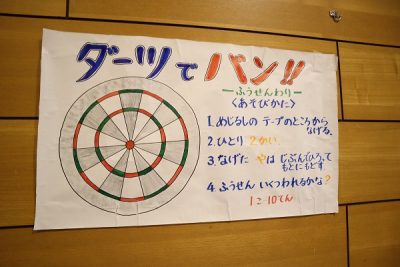 ダーツで バン!!
ーふうせんわりー
〈あそびかた〉
1.めじるしの テープのところから
なげる、
2.ひとり 2かい
3 なげた やは じぶんでひろって
もとにもどす
4 ふうせん いくつわれるかな?
1こ10てん